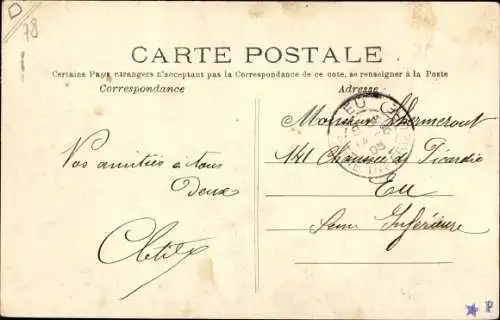 D
78
CARTE POSTALE
Certains Pays étrangers n'acceptant pas la Correspondance de ce côté, se renseigner à la Poste
Correspondance
Adresse
EU
Monsieur
141 Chaussée de Picardie
Eu
Seine Inférieure
Vos amitiés à tous
Deux
P